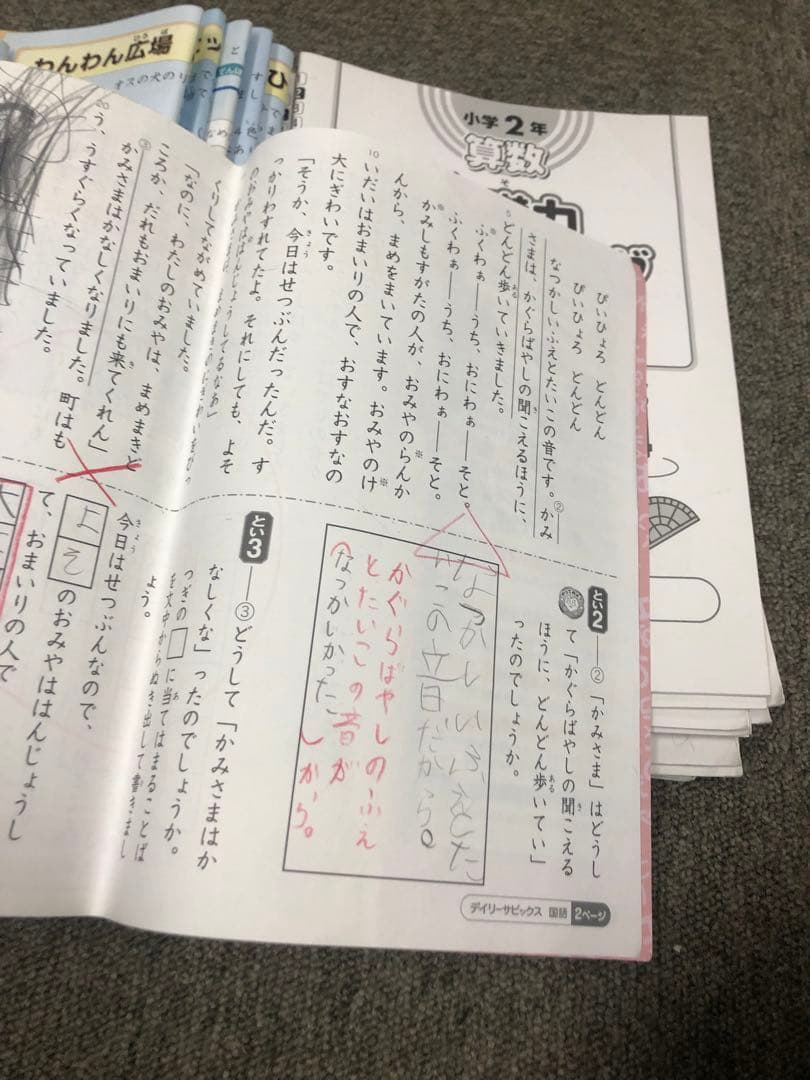 わんわん広場
ひろば
小学2年
算数
ぴいひょろ　どんどん
ぴいひょろ　どんどん
なつかしいふえとたいこの音です。かみ
さまは、かぐらばやしの聞こえるほうに、
どんどん歩いていきました。
ふくわぁ──うち、おにわぁ──そと。
ふくわぁ──うち、おにわぁ──そと。
かみしもすがたの人が、おみやのらんか
んから、まめをまいています。おみやのけ
いだいはおまいりの人で、おすなおすなの
大にぎわいです。
「そうか、今日はせつぶんだったんだ。す
っかりわすれてたよ。それにしても、よそ
のおみやははんじょうしてるなあ」
くりしてながめていました。
「なのに、わたしのおみやは、まめまきど
ころか、だれもおまいりにも来てくれん」
かみさまはかなしくなりました。町はも
う、うすぐらくなっていました。
とい2
②「かみさま」はどうし
て「かぐらばやしの聞こえる
ほうに、どんどん歩いてい」
ったのでしょうか。
なつかしいふえとた
いこの音だから。
かぐらばやしのふえ
とたいこの音が
なつかしかったしから。
とい3
③どうして「かみさまはか
なしくな」ったのでしょうか。
つぎの□に当てはまることば
を文中からぬき出して書きまし
ょう。
今日はせつぶんなので、
よそのおみやははんじょうし
て、おまいりの人で
デイリーサピックス　国語　2ページ